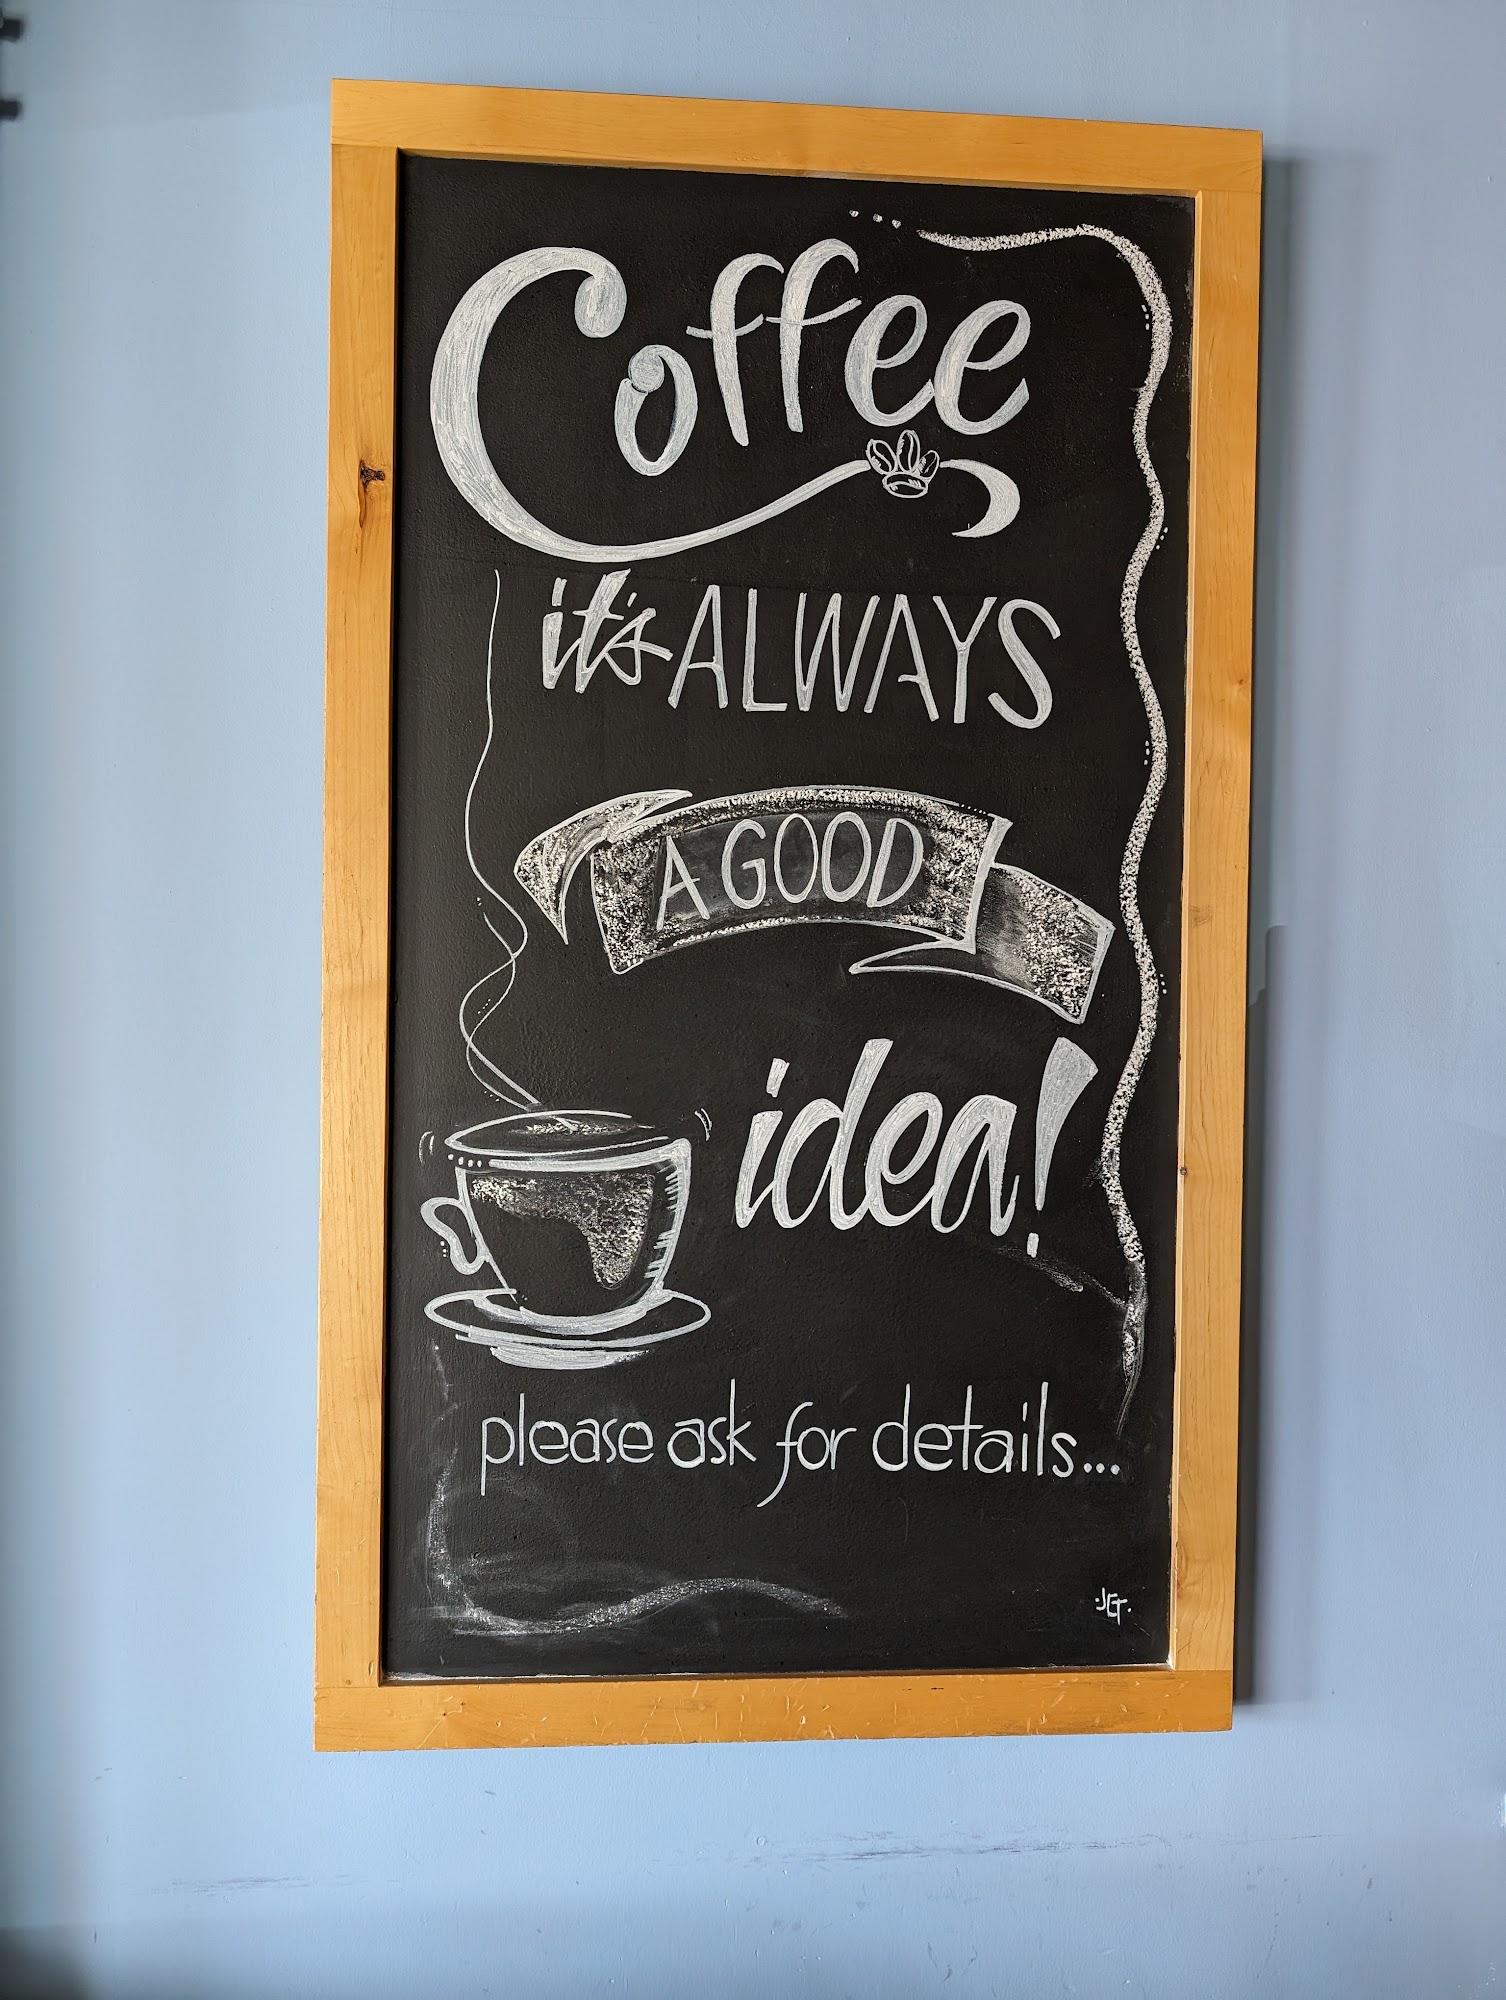 Coffee
it's ALWAYS
A GOOD
idea!
please ask for details...
·JET·